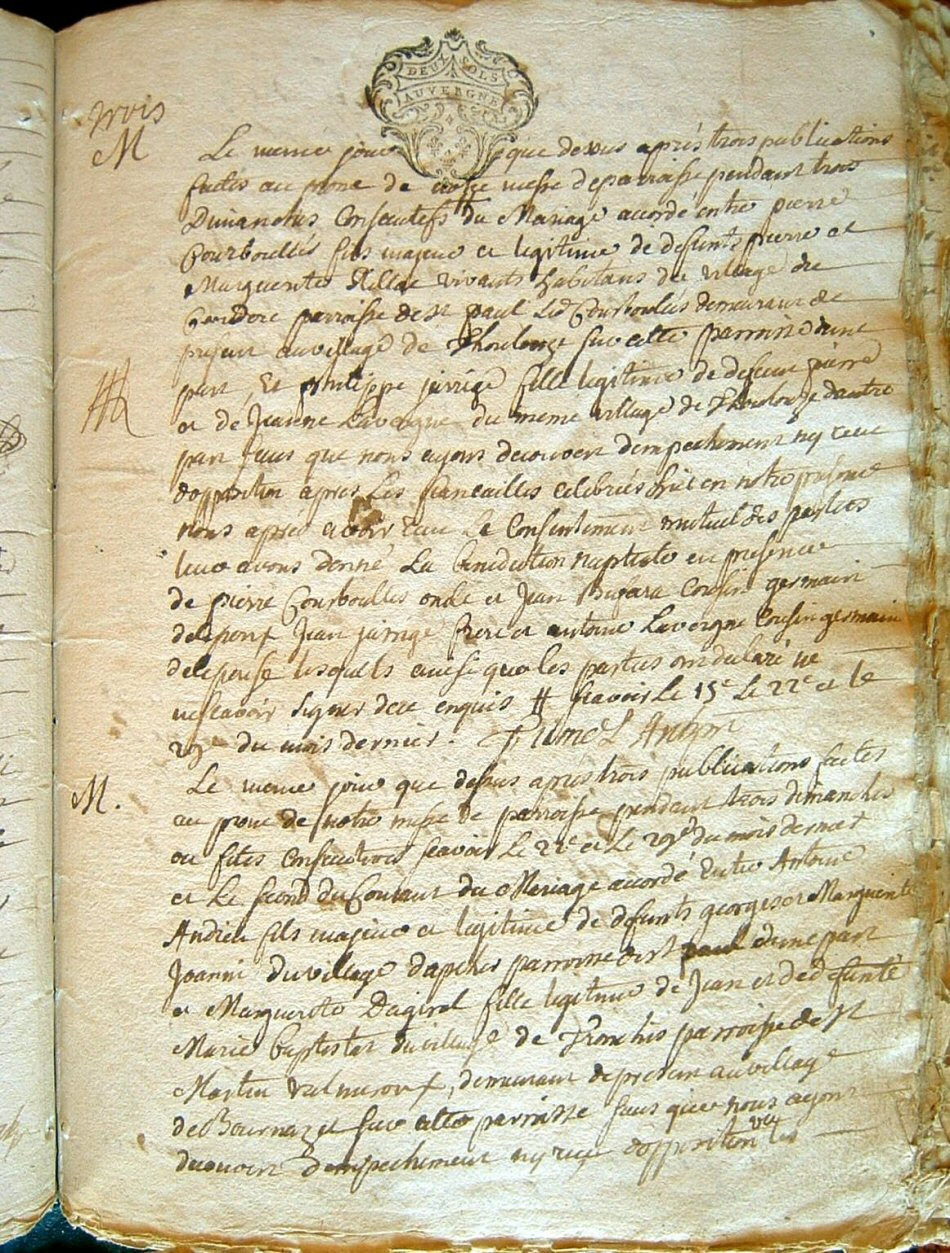 DEUX SOLS
AUVERGNE
trois
M
Le meme jour que desus après trois publications
faites au prone de messe de parroisse pendant trois
Dimanches Consecutifs du Mariage acordé entre pierre
Courboulès fils majeur et legitime de defunts pierre et
Marguerite vivants habitans du village de
parroisse de st paul demeurant de
present au village de sur cette parroisse d'une
part, Et philippe jarrige fille legitime de defeunt pierre
et de Jeanne Lavergne du meme village de d'autre
part sans que nous ayons decouvert d'empechement ny reçu
d'opposition après les fiancailles celebrées hier en notre presence
nous après avoir reçu le Consentement mutuel des parties
leur avons donné La benediction nuptiale en presence
de pierre Courboulès oncle et Jean Cousin germain
de lepoux Jean jarrige frere et antoine Lavergne Cousin germain
de lepouse lesquels ainsi que les parties ont declaré ne
scavoir signer de ce enquis # scavoir Le 15e Le 22e et le
29e du mois dernier.
M.
Le meme jour que desus après trois publications faites
au prone de notre messe de parroisse pendant trois dimanches
ou fetes Consecutives scavoir Le 22e et Le 29e du mois dernier
et Le second du Courant du Mariage acordé Entre Antoine
Andieu fils majeur et legitime de defunts georges et Marguerite
Joanni du village d'apcher parroisse de st paul d'une part
et Marguerite Dagirel fille legitime de Jean et de defunte
Marie du village de parroisse de st
Martin Valmeroux, demeurant de present au village
de Bournazet sur cette parroisse sans que nous ayons
decouvert d'empechement ny reçu d'opposition